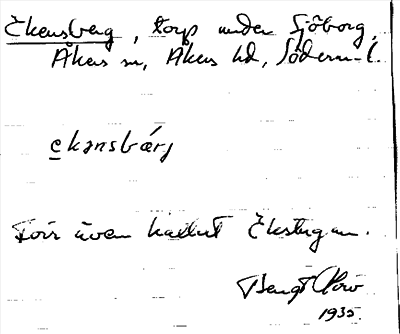 Ekensberg, torp under Sjöborg,
Åkers sn, Åkers hd, Söderm. l.
ekənsbærj
Förr även kallat Ekstugan.
Bengt
1935.